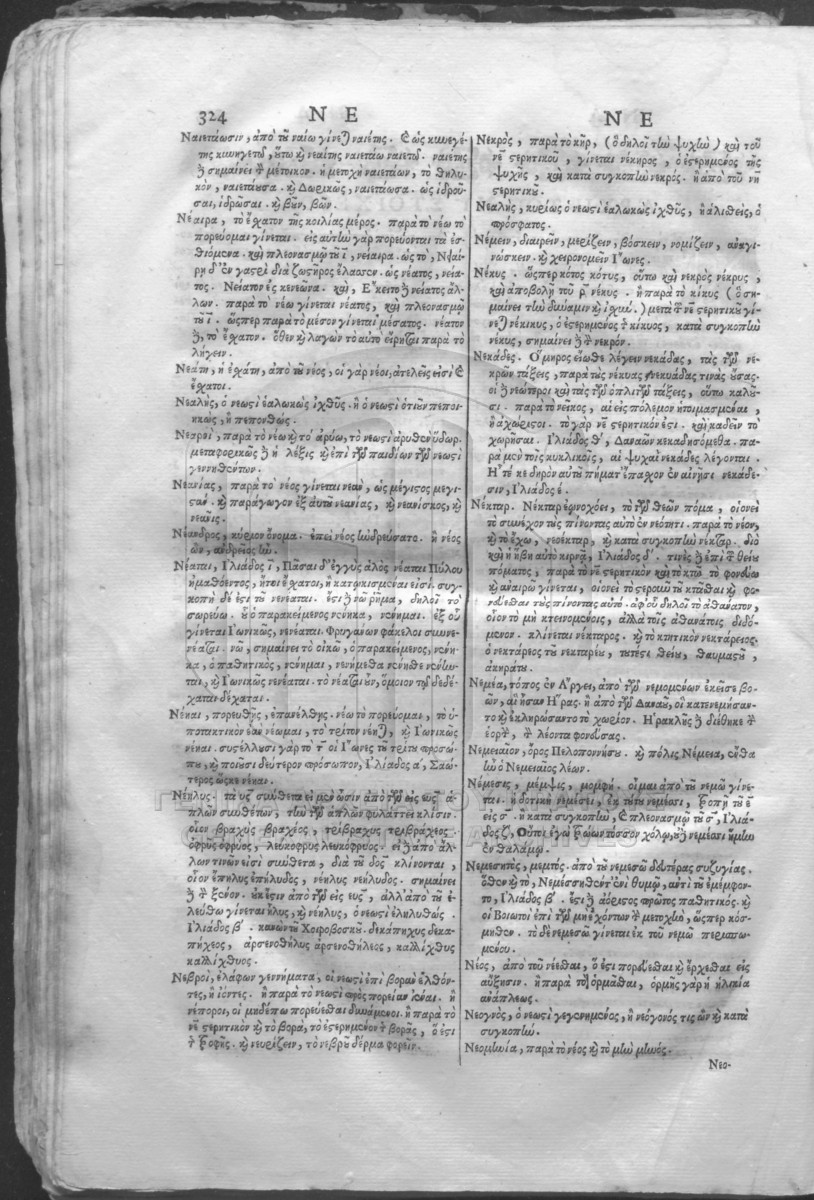 324 Ν Ε
Ναιετάωσιν, ἀπὸ τοῦ ναίω γίνεται ναιέτης. ἐ ὡς κυνηγέ-
της κυνηγετῶ, οὕτω καὶ νεαίτης ναιετάω ναιετῶ. ναιέτης
δὲ σημαίνει τὸν μέτοικον. ἡ μετοχὴ ναιετάων, τὸ θηλυ-
κὸν, ναιετάουσα. καὶ Δωρικῶς, ναιετάωσα. ὡς ἱδροῦ-
σαι, ἱδρῶσαι. καὶ βοῦν, βῶν.
Νέαιρα, τὸ ἔσχατον τῆς κοιλίας μέρος. παρὰ τὸ νέω τὸ
πορεύομαι γίνεται. εἰς αὐτὴν γὰρ πορεύονται τὰ ἐσ-
θιόμενα. καὶ πλεονασμῷ τοῦ ι, νείαιρα. ὡς τὸ, Νειαί-
ρῃ δ' ἐν γαστρὶ διὰ ζωστῆρος ἔλασσεν. ὡς νέατος, νεία-
τος. Νείατον ἐς κενεῶνα. καὶ, Ἔκειτο δὲ νείατος ἄλ-
λων. παρὰ τὸ νέω γίνεται νέατος, καὶ πλεονασμῷ
τοῦ ι. ὥσπερ παρὰ τὸ μέσον γίνεται μέσατος. νέατον
δὲ, τὸ ἔσχατον. ὅθεν καὶ λαγὼν τὸ αὐτὸ εἴρηται παρὰ τὸ
λήγειν.
Νεάτη, ἡ ἐσχάτη, ἀπὸ τοῦ νέος, οἱ γὰρ νέοι, ἀτελεῖς εἰσὶ ἐ
ἔσχατοι.
Νεαλὴς, ὁ νεωστὶ ἑαλωκὼς ἰχθῦς. ἢ ὁ νεωστὶ ὁτιοῦν πεποι-
ηκὼς, ἢ πεπονθώς.
Νεαρνὶ, παρὰ τὸ νέω καὶ τὸ ἀρύω, τὸ νεωστὶ ἀρυθὲν ὕδωρ.
μεταφορικῶς δὲ ἡ λέξις καὶ ἐπὶ τῶν παιδίων τῶν νεωστὶ
γεννηθέντων.
Νεανίας, παρὰ τὸ νέος γίνεται νεὰν, ὡς μέγιστος μεγι-
στάν. καὶ παράγωγον ἐξ αὐτοῦ νεανίας, καὶ νεανίσκος, καὶ
νεᾶνις.
Νέανδρος, κύριον ὄνομα. ἐπεὶ νέος ἱδρεύσατο. ἢ νέος
ὢν, ἀνδρεῖος ἦν.
Νέαται, Ἰλιάδος ι, Πᾶσαι δ' ἐγγὺς ἁλὸς νέαται Πύλου
ἠμαθόεντος, ἤτοι ἔσχατοι, ἢ κατῳκισμέναι εἰσί. συγ-
κοπὴ δέ ἐστι τοῦ νενέαται. ἔστι δὲ νῶ ῥῆμα, δηλοῖ τὸ
σωρεύω. οὗ ὁ παρακείμενος νένηκα, νένημαι. ἐξ οὗ
γίνεται Ἰωνικῶς, νενέαται. Φρυγάνων φάκελοι συννε-
νέαται. νῶ, σημαίνει τὸ οἰκῶ, ὁ παρακείμενος, νένη-
κα, ὁ παθητικὸς, νένημαι, νενήμεθα νένησθε νένην-
ται, καὶ Ἰωνικῶς νενέαται. τὸ νέαται οὖν, ὅμοιον τῷ δεδέ-
χαται δέχαται.
Νέηαι, πορευθῇς, ἐπανέλθῃς. νέω τὸ πορεύομαι, τὸ ὑ-
ποτακτικὸν ἐὰν νέωμαι, τὸ τρίτον νέηται, καὶ Ἰωνικῶς
νέηαι. συστέλλουσι γὰρ τὸ τ οἱ Ἴωνες τοῦ τρίτου προσώ-
που, καὶ ποιοῦσι δεύτερον πρόσωπον, Ἰλιάδος α, Σαώ-
τερος ὥς κε νέηαι.
Νέηλυς. τὰ εἰς υς σύνθετα εἰ μὲν ὦσιν ἀπὸ τῶν εἰς υς ἁ-
πλῶν συνθέτων, τὴν τῶν ἁπλῶν φυλάττει κλίσιν.
οἷον βραχὺς βραχέος, τρίβραχυς τριβράχεος.
ὀφρὺς ὀφρύος, λεύκοφρυς λευκόφρυος. εἰ δὲ ἀπὸ ἄλ-
λων τινῶν εἰσι σύνθετα, διὰ τοῦ δος κλίνονται,
οἷον ἔπηλυς ἐπήλυδος, νέηλυς νεήλυδος. σημαίνει
δὲ τὸν ξένον. οὐκ ἔστιν ἀπὸ τῶν εἰς υς, ἀλλ' ἀπὸ τοῦ ἐ-
λεύθω γίνεται ἦλυς, καὶ νέηλυς, ὁ νεωστὶ ἐληλυθώς.
Ἰλιάδος β. κανὼν τοῦ Χοιροβοσκοῦ. δεκάπηχυς δεκα-
πήχεος, ἀρσενόθηλυς ἀρσενοθήλεος, καλλίχθυς
καλλίχθυος.
Νεβροὶ, ἐλάφων γεννήματα, οἱ νεωστὶ ἐπὶ βορὰν ἐλθόν-
τες, ἢ ἰόντες. ἢ παρὰ τὸ νεωστὶ πρὸς πορείαν ἰέναι. ἢ
νέποροι, οἱ μηδέπω πορεύεσθαι δυνάμενοι. ἢ παρὰ τὸ
νε στερητικὸν καὶ τὸ βορὰ, τὸ ἐστερημένον τῆς βορᾶς, ὅ ἐστι
τῆς τροφῆς. καὶ νευρίζειν, τὸ νεβροῦ δέρμα φορεῖν.
Ν Ε
Νεκρὸς, παρὰ τὸ κὴρ, (ὃ δηλοῖ τὴν ψυχὴν) καὶ τοῦ
νε στερητικοῦ, γίνεται νέκηρος, ὁ ἐστερημένος τῆς
ψυχῆς, καὶ κατὰ συγκοπὴν νεκρός. ἢ ἀπὸ τοῦ νη
στερητικοῦ.
Νεαλὴς, κυρίως ὁ νεωστὶ ἑαλωκὼς ἰχθῦς, ἢ ἁλισθεὶς, ὁ
πρόσφατος.
Νέμειν, διαιρεῖν, μερίζειν, βόσκειν, νομίζειν, ἀναγι-
νώσκειν. καὶ χειρονομεῖν Ἴωνες.
Νέκυς. ὥσπερ κότος κότυς, οὕτω καὶ νεκρὸς νέκρυς,
καὶ ἀποβολῇ τοῦ ρ νέκυς. ἢ παρὰ τὸ κῖκυς (ὃ ση-
μαίνει τὴν δύναμιν καὶ ἰσχύν.) μετὰ τοῦ νε στερητικοῦ γί-
νεται νέκικυς, ὁ ἐστερημένος τῆς κίκυος, κατὰ συγκοπὴν
νέκυς, σημαίνει δὲ τὸν νεκρόν.
Νεκάδες. Ὅμηρος εἴωθε λέγειν νεκάδας, τὰς τῶν νε-
κρῶν τάξεις, παρὰ τοὺς νέκυας νεκυάδας τινὰς οὔσας.
οἱ δὲ νεώτεροι καὶ τὰς τῶν ὁπλιτῶν τάξεις, οὕτω καλοῦ-
σι. παρὰ τὸ νεῖκος, αἱ εἰς πόλεμον ἡτοιμασμέναι,
ἢ ἀχώριστοι. τὸ γὰρ νε στερητικόν ἐστι. καὶ καδεῖν τὸ
χωρῆσαι. Ἰλιάδος θ, Δαναῶν κεκαδησόμεθα. πα-
ρὰ μὲν τοῖς κυκλικοῖς, αἱ ψυχαὶ νεκάδες λέγονται.
Ἥ τέ κε δηρὸν αὐτοῦ πήματ' ἔπασχον ἐν αἰνῇσι νεκάδε-
σιν, Ἰλιάδος ε.
Νέκταρ. Νέκταρ ἐῳνοχόει, τὸ τῶν θεῶν πόμα, οἱονεὶ
τὸ συνέχον τοὺς πίνοντας αὐτὸ ἐν νεότητι. παρὰ τὸ νέον,
καὶ τὸ ἔχω, νεόεκταρ, καὶ κατὰ συγκοπὴν νέκταρ. διὸ
καὶ ἡ ἥβη αὐτὸ κιρνᾷ, Ἰλιάδος δ. τινὲς δὲ ἐπὶ τοῦ θείου
πόματος, παρὰ τὸ νε στερητικὸν καὶ τὸ κτῶ τὸ φονεύω
καὶ ἀναιρῶ γίνεται, οἱονεὶ τὸ στεροῦν τοῦ κτᾶσθαι καὶ φο-
νεύεσθαι τοὺς πίνοντας αὐτό. ἀφ' οὗ δηλοῖ τὸ ἀθάνατον,
οἷον τὸ μὴ κτεινομένοις, ἀλλὰ τοῖς ἀθανάτοις διδό-
μενον. κλίνεται νέκταρος. καὶ τὸ κτητικὸν νεκτάρειος.
ὁ νεκτάρεος τοῦ νεκταρέου, τουτέστι θείου, θαυμαστοῦ,
ἀκηράτου.
Νεμέα, τόπος ἐν Ἄργει, ἀπὸ τῶν νεμομένων ἐκεῖσε βο-
ῶν, αἳ ἦσαν Ἥρας. ἢ ἀπὸ τῶν Δαναοῦ, οἳ κατενεμήσαν-
το καὶ ἐκληρώσαντο τὸ χωρίον. Ἡρακλῆς δὲ διέθηκε τὴν
ἑορτὴν, τὸν λέοντα φονεύσας.
Νεμειαῖον, ὄρος Πελοποννήσου. καὶ πόλις Νέμεια, ἔνθα
ἦν ὁ Νεμειαῖος λέων.
Νέμεσις, μέμψις, μομφή. οἶμαι ἀπὸ τοῦ νεμῶ γίνε-
ται. ἡ δοτικὴ νεμέσει, ἐκ τούτου νεμέσι, τροπῇ τοῦ ε
εἰς σ. ἢ κατὰ συγκοπὴν, ἐ πλεονασμῷ τοῦ σ, Ἰλιά-
δος ζ, Οὔτοι ἐγὼ Τρώων τόσσον χόλῳ, οὐδὲ νεμέσσι ἥμην
ἐν θαλάμῳ.
Νεμεσητὸς, μεμπτός. ἀπὸ τοῦ νεμεσῶ δευτέρας συζυγίας.
ὅθεν καὶ τὸ, Νεμέσσηθέν τ' ἐνὶ θυμῷ, ἀντὶ τοῦ ἐμέμφον-
το, Ἰλιάδος β. ἔστι δὲ ἀόριστος πρῶτος παθητικός. καὶ
οἱ Βοιωτοὶ ἐπὶ τῶν μὴ ἐχόντων τὴν μετοχὴν, ὥσπερ κόσ-
μηθεν. τὸ δὲ νεμεσῶ γίνεται ἐκ τοῦ νεμῶ περισπω-
μένου.
Νέος, ἀπὸ τοῦ νέεσθαι, ὅ ἐστι πορεύεσθαι καὶ ἔρχεσθαι εἰς
αὔξησιν. ἢ παρὰ τὸ ὁρμᾶσθαι, ὁρμῆς γὰρ ἡ ἡλικία
ἀνάπλεως.
Νεογνὸς, ὁ νεωστὶ γεγενημένος, ἢ νεόγονός τις ὢν καὶ κατὰ
συγκοπήν.
Νεομηνία, παρὰ τὸ νέος καὶ τὸ μὴν μηνός.
Νεο-